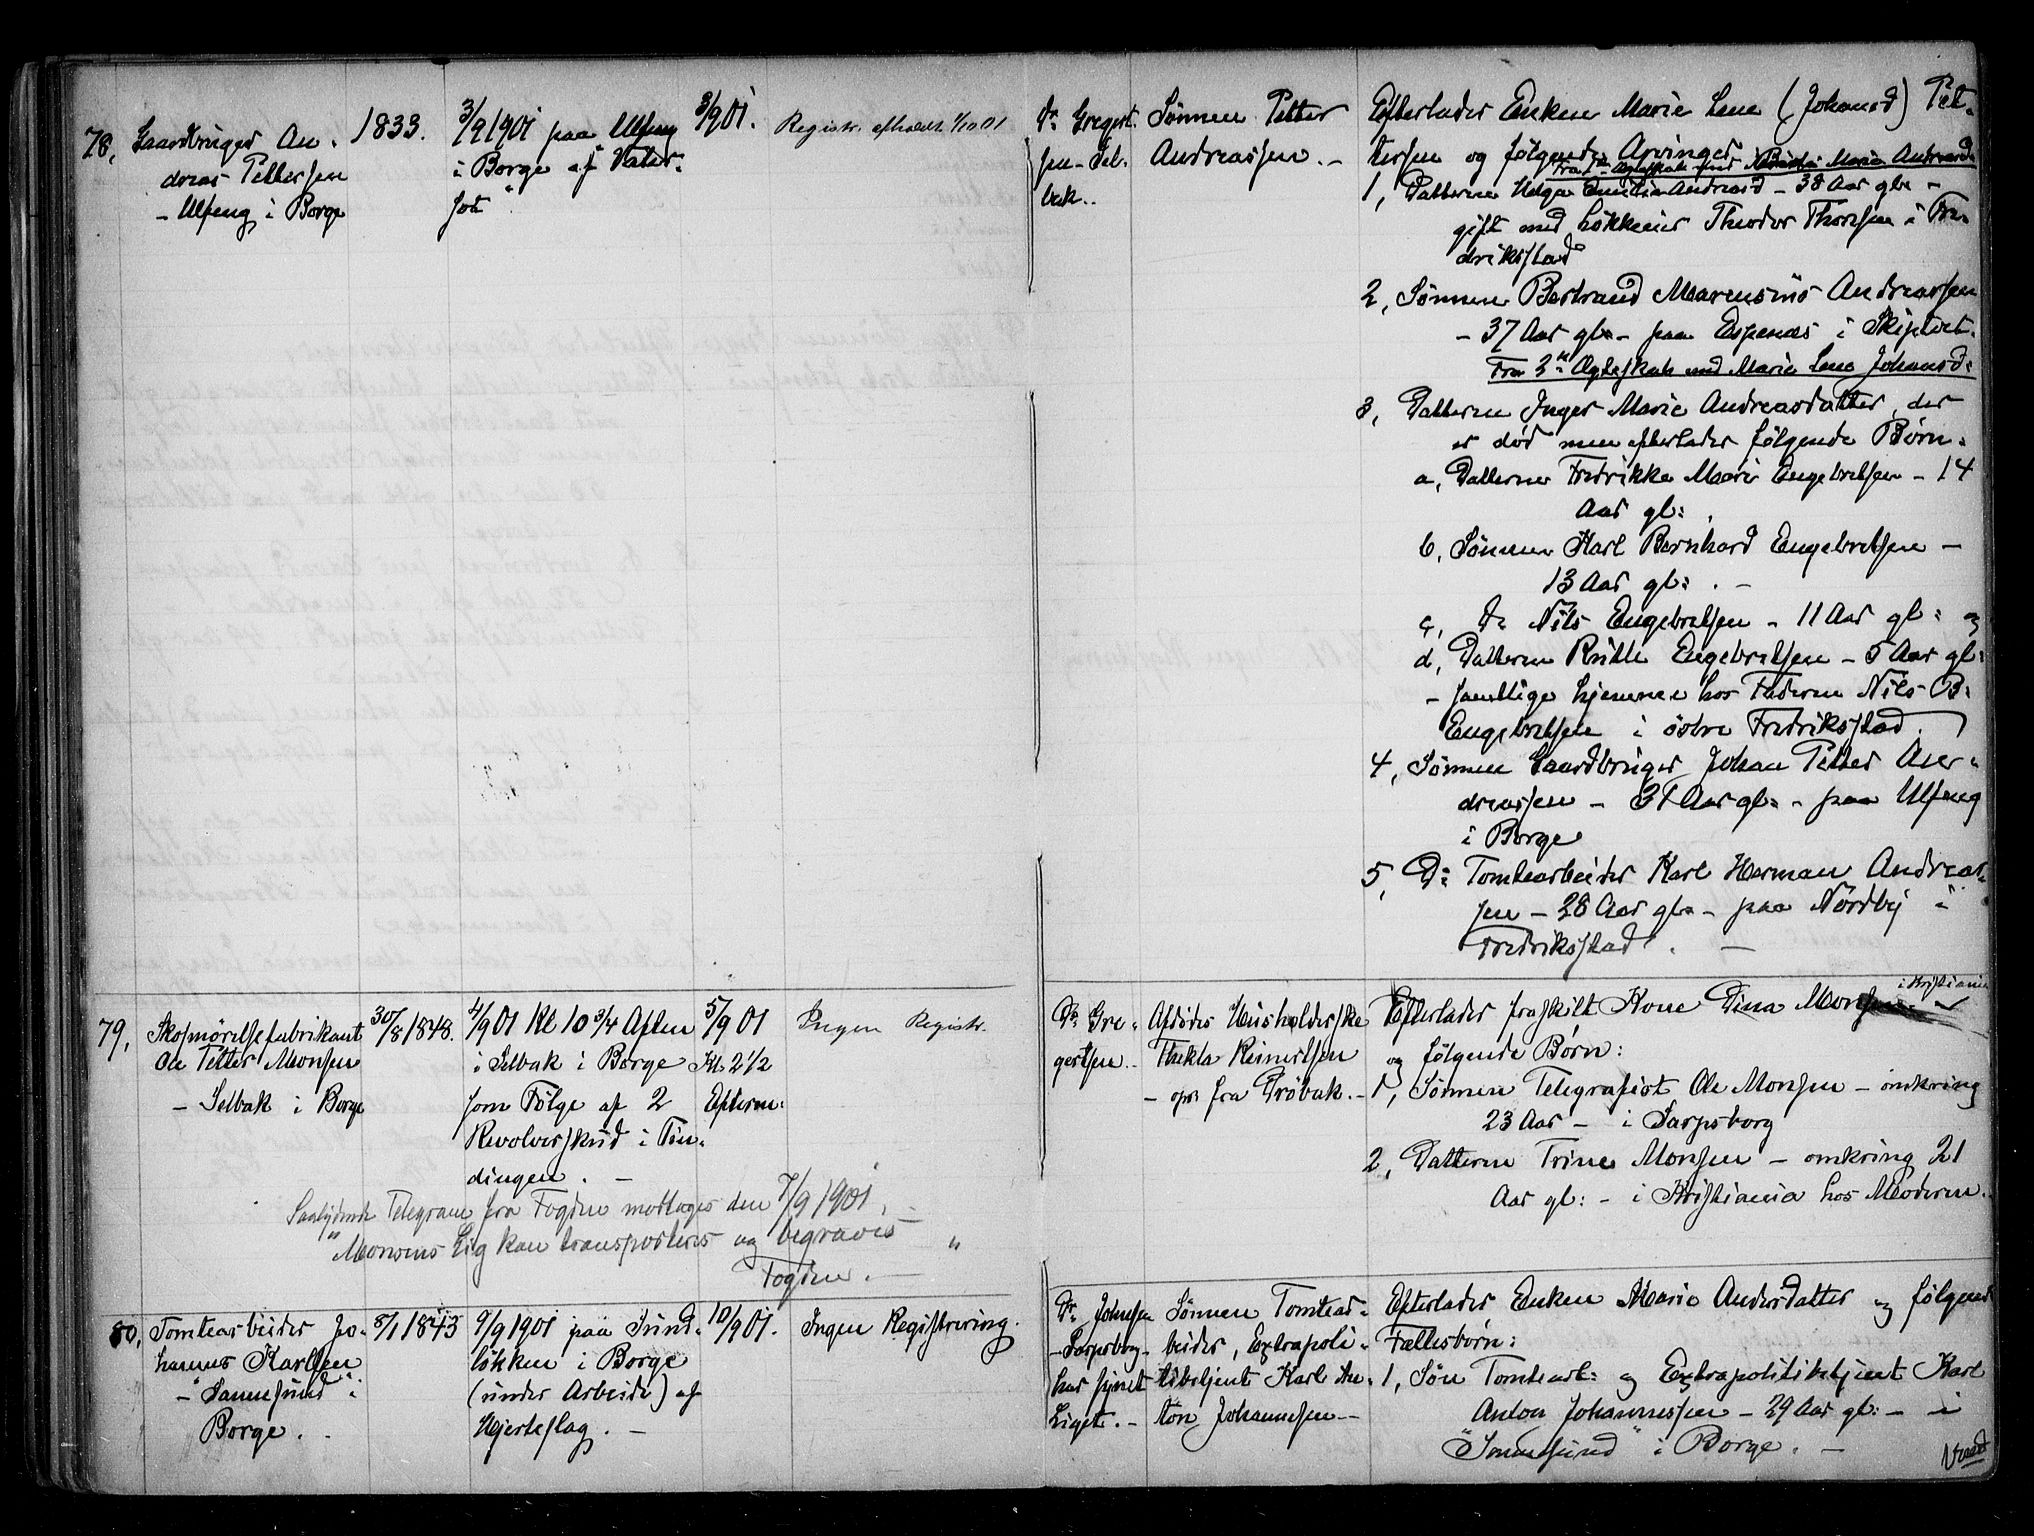 78, Gaardbruger An-
dreas Pettersen
- Ulfeng i Borge
1833.
3/9 1901 paa Ulfeng
i Borge af Vater-
sot
3/9 01.
Registr. afholdt 1/10 01
Dr. Gregert-
sen - Sel-
bak. -
Sønnen Petter
Andreassen. -
Efterlader Enken Marie Lene (Johansd) Pet-
tersen og følgende Arvinger
Fra 1ste Ægteskab med Marie Andreasd:
1, Datteren Helga Emilia Andreasd - 38 Aar gl: -
gift med Løkkeeier Theodor Thorsen i Fre-
drikstad
2, Sønnen Bertrand Marensius Andreassen
- 37 Aar gl: - paa Espenæs i Skiptvet.
Fra 2det Ægteskab med Marie Lene Johansd:
3, Datteren Inger Marie Andreasdatter, der
er død men efterlader følgende Børn.
a, Datteren Fredrikke Marie Engebretsen - 14
Aar gl: .
b, Sønnen Karl Bernhard Engebretsen -
13 Aar gl: . -
c, Do Nils Engebretsen - 11 Aar gl: og
d, Datteren Ruth Engebretsen - 5 Aar gl:
- samtlige hjemme hos Faderen Nils B:
Engebretsen i østre Fredriksstad.
4, Sønnen Gaardbruger Johan Petter An-
dreassen - 31 Aar gl: - paa Ulfeng
i Borge
5, Do Tomtearbeider Karl Herman Andreas-
sen - 28 Aar gl: - paa Nordby i
Fredriksstad . -
79, Skosmørelsefabrikant
Ole Petter Monsen
- Selbak i Borge
30/8 1848.
4/9 01 Kl 10 3/4 Aften
i Selbak i Borge
som Følge af 2
Revolverskud i Tin-
dingen . -
5/9 01
Kl. 2 1/2
Efterm:
Ingen Registr.
Dr. Gre-
gertsen. -
Afdødes Husholderske
Thekla Reinertsen
- opr: fra Drøbak. -
i Kristiania
Efterlader fraskilt Kone Dina Monsen -
og følgende Børn:
1, Sønnen Telegrafist Ole Monsen - omkring
23 Aar - i Sarpsborg
2, Datteren Trine Monsen - omkring 21
Aar gl: - i Kristiania hos Moderen.
Saalydende Telegram fra Fogden modtages den 7/9 1901. -
"Monsens Lig kan transporteres og begraves "
Fogden. -
80, Tomtearbeider Jo-
hannes Karlsen
- "Sannesund" i
Borge. -
8/1 1843
9/9 1901 paa Sund-
løkken i Borge
(under Arbeide) af
Hjerteslag. -
10/9 01.
Ingen Registrering.
Dr. Johnsen
- Sarpsborg -
har synet
Liget. -
Sønnen Tomtear-
beider, Extrapoli-
tibetjent Karl An-
ton Johannessen -
Efterlader Enken Marie Andersdatter og følgende
Fællesbørn:
1, Søn Tomtearb: og Extrapolitibetjent Karl
Anton Johannessen - 29 Aar gl: - i
"Sannesund" i Borge. -
Vend